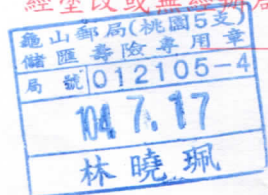 經塗改或無經辦局
龜山郵局(桃園5支)
儲匯壽險專用章
局號012105-4
104.7.17
林曉珮